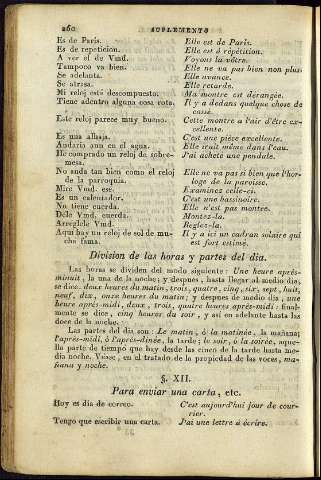 260 SUPLEMENTO
Es de París. Elle est de Paris.
Es de repeticion. Elle est à répétition.
A ver el de Vmd. Voyons la vôtre.
Tampoco va bien. Elle ne va pas bien non plus.
Se adelanta. Elle avance.
Se atrasa. Elle retarde.
Mi reloj está descompuesto. Ma montre est dérangée.
Tiene adentro alguna cosa rota. Il y a dedans quelque chose de
casse.
Este reloj parece muy bueno. Cette montre a l'air d'être ex-
cellente.
Es una alhaja. C'est une pièce excellente.
Andaria aun en el agua. Elle irait même dans l'eau.
He comprado un reloj de sobre- J'ai acheté une pendule.
mesa.
No anda tan bien como el reloj Elle ne va pas si bien que l'hor-
de la parroquia. loge de la paroisse.
Mire Vmd. ese. Examinez celle-ci.
Es un calentador. C'est une bassinoire.
No tiene cuerda. Elle n'est pas montée.
Dele Vmd. cuerda. Montez-la.
Arreglele Vmd. Reglez-la.
Aqui hay un reloj de sol de mu- Il y a ici un cadran solaire qui
cha fama. est fort estimé.
Division de las horas y partes del dia.
Las horas se dividen del modo siguiente: Une heure après-
minuit, la una de la noche; y despues, hasta llegar al medio dia,
se dice deux heures du matin, trois, quatre, cinq, six, sept, huit,
neuf, dix, onze heures du matin; y despues de medio dia, une
heure après-midi, deux, trois, quatre heures après-midi: final-
mente se dice, cinq heures du soir, y asi en adelante hasta las
doce de la noche.
Las partes del dia son: Le matin, ó la matinée, la mañana;
l'après-midi, ó l'après-dînée, la tarde; le soir, ó la soirée, aque-
lla parte de tiempo que hay desde las cinco de la tarde hasta me-
dia noche. Véase, en el tratado de la propiedad de las voces, ma-
ñana y noche.
§. XII.
Para enviar una carta, etc.
Hoy es dia de correo. C'est aujourd'hui jour de cour-
rier.
Tengo que escribir una carta. J'ai une lettre à écrire.